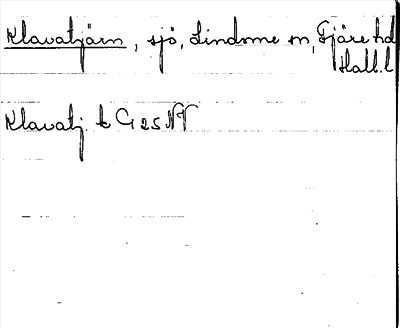 Klavatjärn, sjö, Lindome sn, Fjäre hd
Hall. l
Klavatj. tk G 25 NV